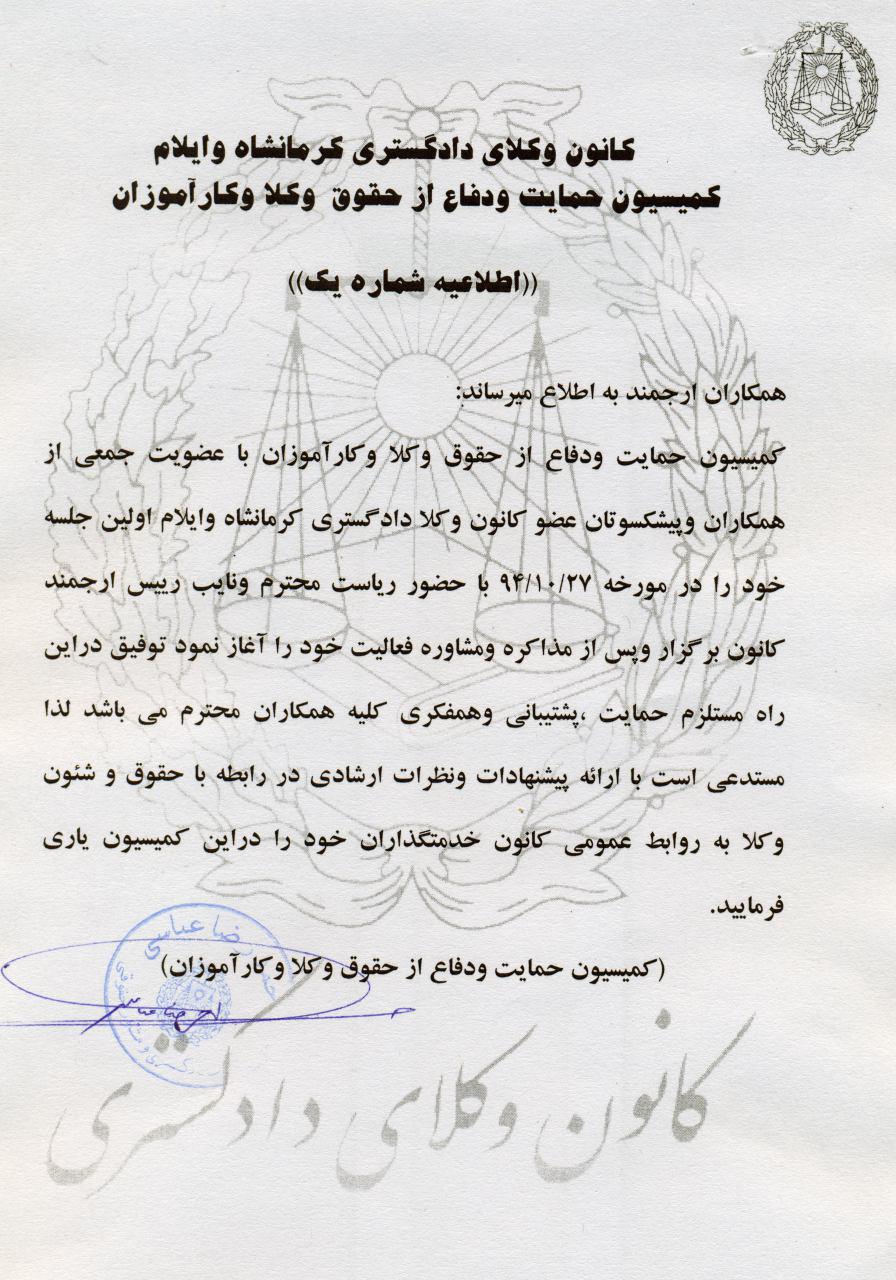 کانون وکلای دادگستری کرمانشاه وایلام
کمیسیون حمایت ودفاع از حقوق وکلا وکارآموزان
((اطلاعیه شماره یک))
همکاران ارجمند به اطلاع میرساند:
کمیسیون حمایت ودفاع از حقوق وکلا وکارآموزان با عضویت جمعی از
همکاران وپیشکسوتان عضو کانون وکلا دادگستری کرمانشاه وایلام اولین جلسه
خود را در مورخه ۹۴/۱۰/۲۷ با حضور ریاست محترم ونایب رییس ارجمند
کانون برگزار وپس از مذاکره ومشاوره فعالیت خود را آغاز نمود توفیق دراین
راه مستلزم حمایت ،پشتیبانی وهمفکری کلیه همکاران محترم می باشد لذا
مستدعی است با ارائه پیشنهادات ونظرات ارشادی در رابطه با حقوق و شئون
وکلا به روابط عمومی کانون خدمتگذاران خود را دراین کمیسیون یاری
فرمایید.
رضا عباسی
(کمیسیون حمایت ودفاع از حقوق وکلا وکارآموزان)
کانون وکلای دادگستری